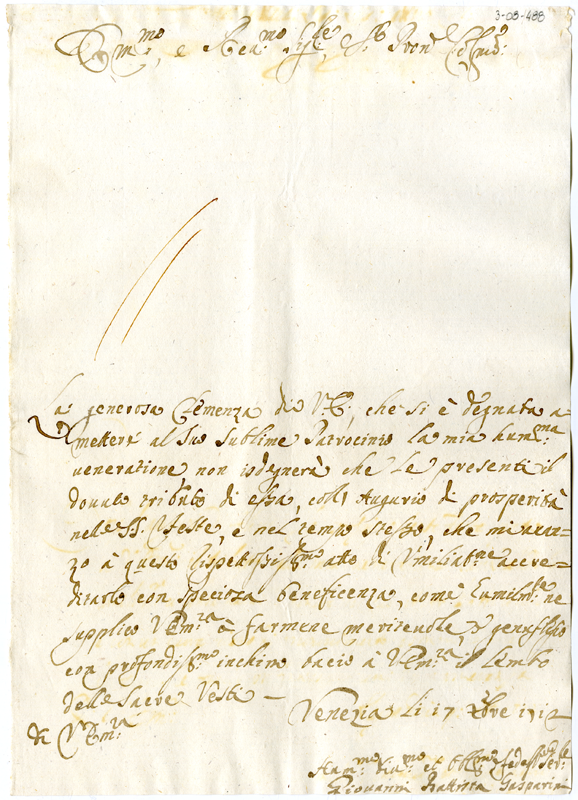 3-08-488
Em.mo, e Reu.mo Sig.re, Sig.r Pron.e Col.mo
La generosa Clemenza di V.E., che si è degnata a=
mettere al suo sublime Patrocinio la mia hum.ma
ueneratione, non isdegnerà che Le presenti il
douuto tributo di essa, coll'Augurio di prosperità
nelle SS. Feste, e nel tempo stesso, che mi auan=
zo à questo rispettosiss.mo atto di Vmiliat.ne accre=
ditarlo con speciosa beneficenza, come humilm.te ne
supplico V.Em.za à farmene meriteuole, e genuflesso
con profondiss.mo inchino bacio à V.Em.za il Lembo
delle Sacre Vesti —
Venezia Li 17 Xbre 1712
Di V.Em.za
Hum.mo Diu.mo et Obl.mo Ser.
Giouanni Battista Gasparini